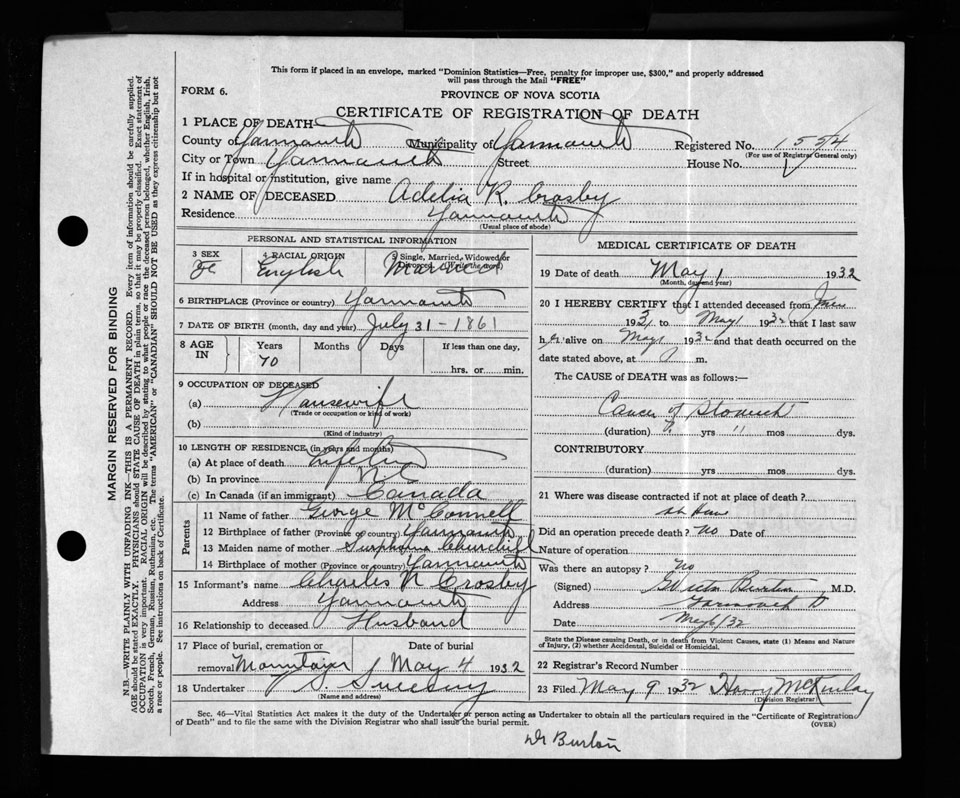 This form if placed in an envelope, marked "Dominion Statistics—Free, penalty for improper use, $300," and properly addressed
will pass through the Mail "FREE"
FORM 6.
PROVINCE OF NOVA SCOTIA
CERTIFICATE OF REGISTRATION OF DEATH
1 PLACE OF DEATH—
County of Yarmouth Municipality of Yarmouth Registered No. 1554
(For use of Registrar General only)
City or Town Yarmouth Street House No.
If in hospital or institution, give name
2 NAME OF DECEASED Adelia K. Crosby
Residence Yarmouth
(Usual place of abode)
PERSONAL AND STATISTICAL INFORMATION
3 SEX 4 RACIAL ORIGIN 5 Single, Married, Widowed or
Fe English Married
6 BIRTHPLACE (Province or country) Yarmouth
7 DATE OF BIRTH (month, day and year) July 31 - 1861
8 AGE IN Years Months Days If less than one day,
70 hrs. or min.
9 OCCUPATION OF DECEASED
(a) Housewife
(Trade or occupation or kind of work)
(b)
(Kind of industry)
10 LENGTH OF RESIDENCE (in years and months)
(a) At place of death
(b) In province
(c) In Canada (if an immigrant) Canada
Parents
11 Name of father George McConnell
12 Birthplace of father (Province or country) Yarmouth
13 Maiden name of mother Churchill
14 Birthplace of mother (Province or country) Yarmouth
15 Informant's name Charles N Crosby
Address Yarmouth
16 Relationship to deceased Husband
17 Place of burial, cremation or Date of burial
removal Mountain May 4 1932
18 Undertaker S Sweeny
(Name and address)
MEDICAL CERTIFICATE OF DEATH
19 Date of death May 1 1932
(Month, day and year)
20 I HEREBY CERTIFY that I attended deceased from June
1931 to May 1 1932 that I last saw
her alive on May 1 1932 and that death occurred on the
date stated above, at m.
The CAUSE of DEATH was as follows:—
Cancer of Stomach
(duration) yrs 11 mos dys.
CONTRIBUTORY
(duration) yrs. mos. dys.
21 Where was disease contracted if not at place of death?
at Home
Did an operation precede death? No Date of
Nature of operation
Was there an autopsy? No
(Signed) Burton M.D.
Address Yarmouth
Date May 6/32
State the Disease causing Death, or in death from Violent Causes, state (1) Means and Nature
of Injury, (2) whether Accidental, Suicidal or Homicidal.
22 Registrar's Record Number
23 Filed May 9 1932 Harry McKinlay
(Division Registrar)
Sec. 46—Vital Statistics Act makes it the duty of the Undertaker or person acting as Undertaker to obtain all the particulars required in the "Certificate of Registration
of Death" and to file the same with the Division Registrar who shall issue the burial permit.
(OVER)
Dr Burton
MARGIN RESERVED FOR BINDING
N.B.—WRITE PLAINLY WITH UNFADING INK—THIS IS A PERMANENT RECORD. Every item of information should be carefully supplied.
AGE should be stated EXACTLY. PHYSICIANS should STATE CAUSE OF DEATH in plain terms, so that it may be properly classified. Exact statement of
OCCUPATION is very important. RACIAL ORIGIN will be described by stating to what people or race the deceased person belonged, whether English, Irish,
Scotch, French, German, Russian, Ruthenian, etc. The terms "AMERICAN" or "CANADIAN" SHOULD NOT BE USED as they express citizenship but not
a race or people. See instructions on back of Certificate.